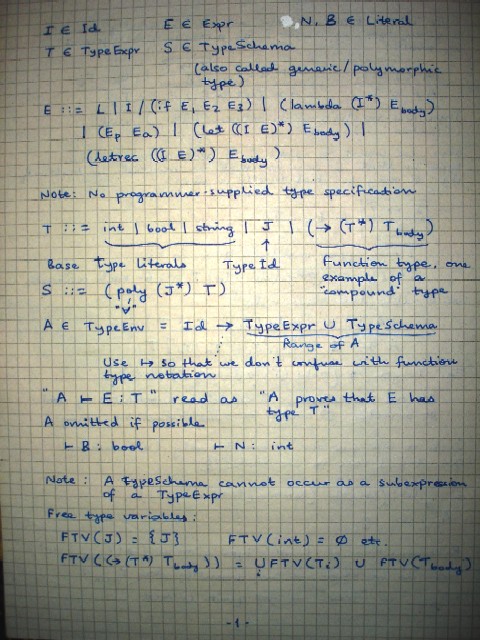 I ∈ Id E ∈ Expr N, B ∈ Literal
T ∈ TypeExpr S ∈ TypeSchema
(also called generic/polymorphic
type)
E ::= L | I | (if E₁ E₂ E₃) | (lambda (I*) E_body)
| (E_p E_a) | (let ((I E)*) E_body) |
(letrec ((I E)*) E_body)
Note: No programmer-supplied type specification
T ::= int | bool | string | J | (→ (T*) T_body)
Base Type Literals Type Id Function type, one
example of a
"compound" type
S ::= (poly (J*) T)
"∀"
A ∈ TypeEnv = Id → TypeExpr ∪ TypeSchema
Range of A
Use ↦ so that we don't confuse with function
type notation
"A ⊢ E : T" read as "A proves that E has
type T"
A omitted if possible
⊢ B : bool ⊢ N : int
Note : A TypeSchema cannot occur as a subexpression
of a TypeExpr
Free type variables :
FTV(J) = {J} FTV(int) = Ø etc.
FTV((→ (T*) T_body)) = ∪ᵢ FTV(Tᵢ) ∪ FTV(T_body)
-1-